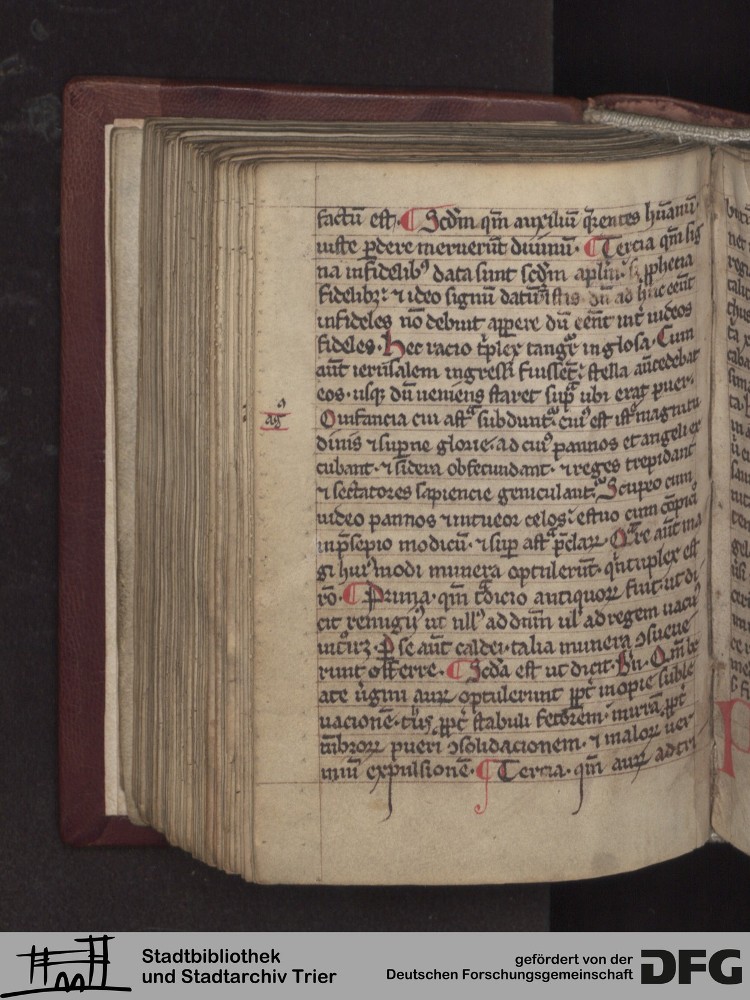 factū est. ¶ Scd̄m qm̄ auxiliū q̄rentes hūanū.
iuste ꝑdere meruerūt diuinū. ¶ Tercia qm̄ sig
na infidelibꝰ data sunt scd̄m apl̄m. ꝓphetia
fidelibꝫ. ⁊ ideo signū datū istis dū ad huc eēnt
infideles nō debuit apꝑere dū eēnt int̄ iudeos
fideles. Hec racio tͥplex tangit᷑ in glosa. Cum
aūt ierusalem ingressi fuissēt. stella an̄cedebat
eos. usqꝫ dū ueniens staret sup̄ ubi erat puer.
ag̅ꝰ
O infancia cui astᵃ subdunt᷑. cuiꝰ est istᵃ magnitu
dinis ⁊ sup̄ne glorie. ad cuiꝰ pannos et angeli ex
cubant. ⁊ sid̄era obsecundant. ⁊ reges trepidant
⁊ sectatores sapiencie geniculant᷑. Stupeo cum
uideo pannos ⁊ intueor celos. estuo cum
in p̄sepio modicū. ⁊ sup̄ astᵃ p̄claꝝ. Qᵃre aūt ma
gi huiꝰmodi munera optulerūt. qͥntuplex est
rō. ¶ Prima. qm̄ tᵃdicio antiquoꝝ fuit. ut di
cit remigiꝰ ut nullꝰ ad deum uel ad regem uacuꝰ
int̄ret. Pse aūt caldei. talia munera ꝯsueue
runt offerre. ¶ Scd̄a est ut dicit. Bn̄. Qm̄ be
ate uͥgini auꝝ optulerunt ꝓpt̄ inopie suble
uacionē. tus ꝓpt̄ stabuli fetorem. mirrā ꝓpt̄
mēbroꝝ pueri ꝯsolidacionem. ⁊ maloꝝ uer
miū expulsionē. ¶ Tercia. qm̄ auꝝ ad tri
Stadtbibliothek
und Stadtarchiv Trier
gefördert von der
Deutschen Forschungsgemeinschaft
DFG